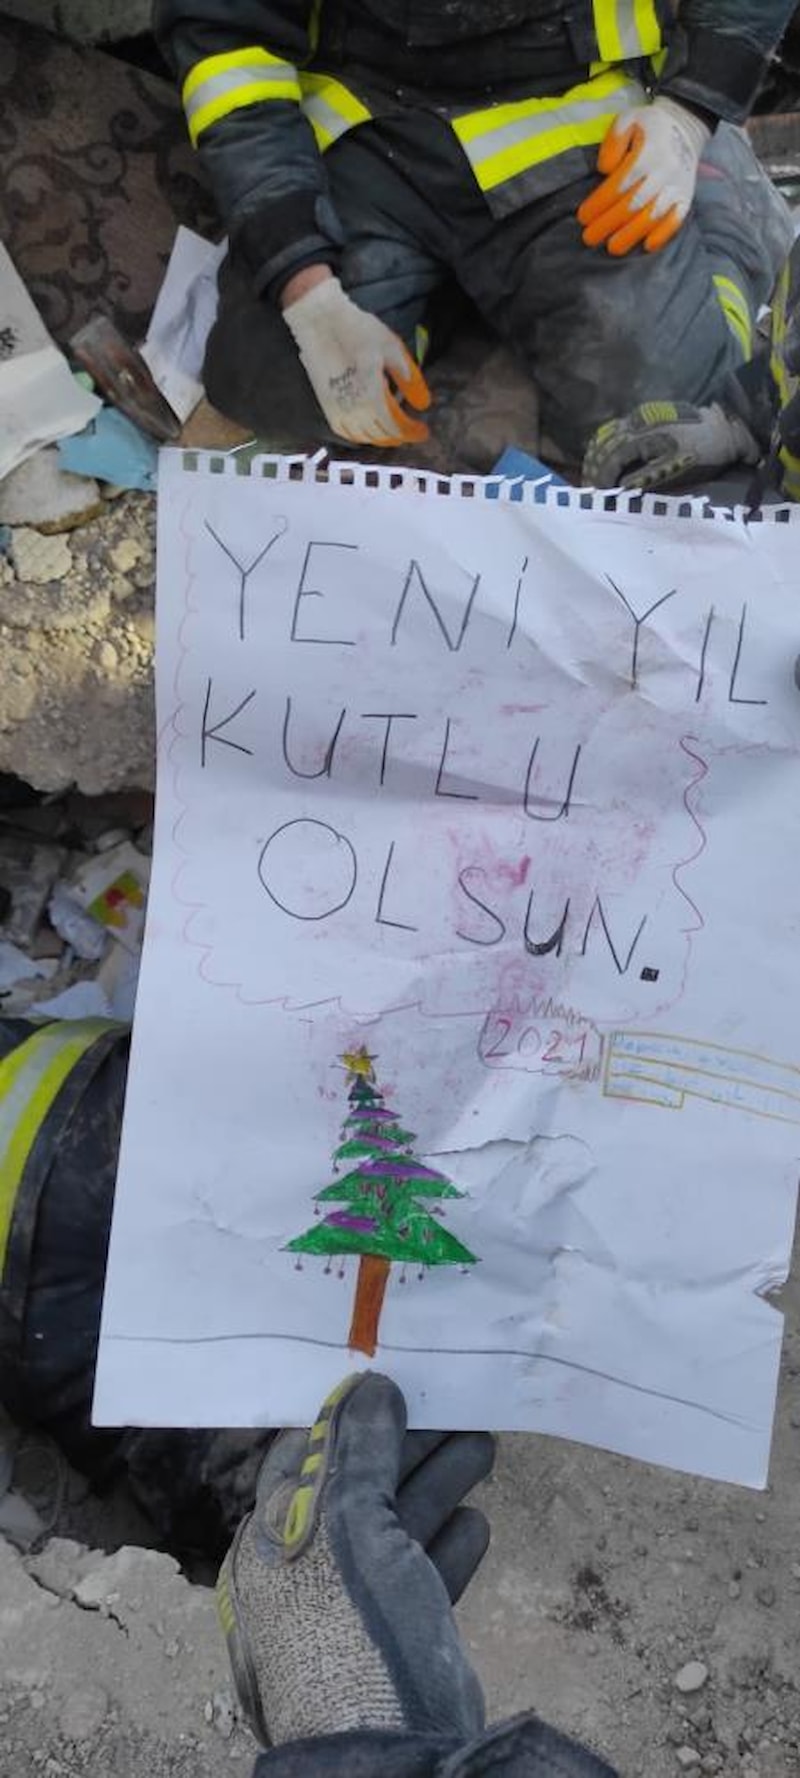 YENİ YIL
KUTLU
OLSUN.
2021